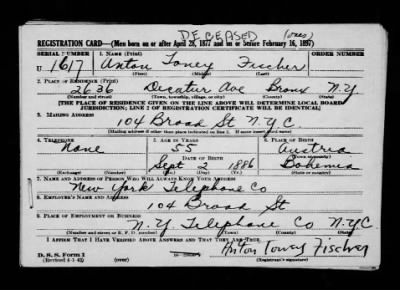 DECEASED
(ones)
REGISTRATION CARD—(Men born on or after April 28, 1877 and on or before February 16, 1897)
SERIAL NUMBER 1. NAME (Print) ORDER NUMBER
U 1617 Anton Toney Fischer
(First) (Middle) (Last)
2. PLACE OF RESIDENCE (Print)
2636 Decatur Ave Bronx N.Y.
(Number and street) (Town, township, village, or city) (County) (State)
[THE PLACE OF RESIDENCE GIVEN ON THE LINE ABOVE WILL DETERMINE LOCAL BOARD
JURISDICTION; LINE 2 OF REGISTRATION CERTIFICATE WILL BE IDENTICAL]
3. MAILING ADDRESS
104 Broad St N.Y.C.
[Mailing address if other than place indicated on line 2. If same insert word same]
4. TELEPHONE 5. AGE IN YEARS 6. PLACE OF BIRTH
None 55 Austria
DATE OF BIRTH (Town or county)
Sept 2 1886 Bohemia
(Exchange) (Number) (Mo.) (Day) (Yr.) (State or country)
7. NAME AND ADDRESS OF PERSON WHO WILL ALWAYS KNOW YOUR ADDRESS
New York Telephone Co
8. EMPLOYER'S NAME AND ADDRESS
104 Broad St
9. PLACE OF EMPLOYMENT OR BUSINESS
N.Y. Telephone Co N.Y.C.
(Number and street or R. F. D. number) (Town) (County) (State)
I AFFIRM THAT I HAVE VERIFIED ABOVE ANSWERS AND THAT THEY ARE TRUE.
D. S. S. Form 1 Anton Toney Fischer
(Revised 4-1-42) (over) (Registrant's signature)